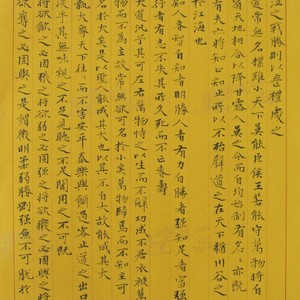 泣之戰勝則以喪禮處之
道常無名樸雖小天下莫能臣侯王若能守萬物將自
賓天地相合以降甘露人莫之令而自均始制有名名亦既
有夫亦將知止知止所以不殆譬道之在天下猶川谷之
於江海也
知人者智自知者明勝人者有力自勝者強知足者富強
行者有志不失其所者久死而不亡者壽
大道汎兮其可左右萬物恃之以生而不辭功成不居衣被萬
物而不為主故常無欲可名於小矣萬物歸焉而不知主可
名於大矣是以聖人能成其大也以其不自大故能成其大
執大象天下往往而不害安平泰樂與餌過客止道之出口
淡乎其無味視之不足見聽之不足聞用之不可既
將欲歙之必固張之將欲弱之必固強之將欲廢之必固興之將
欲奪之必固與之是謂微明柔弱勝剛強魚不可脫於